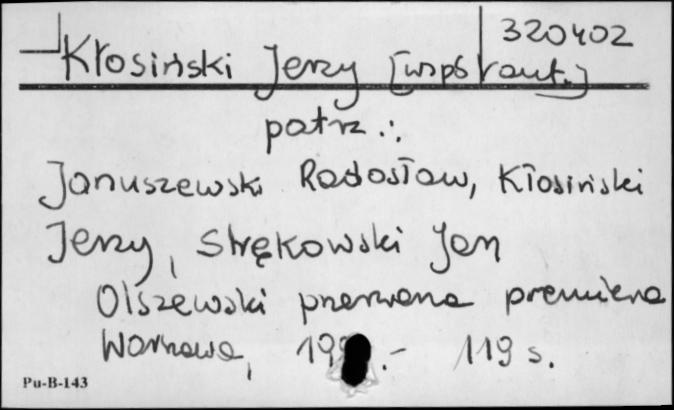 320402
Kłosiński Jerzy [wspłaut.]
patrz.:
Januszewski Radosław, Kłosiński
Jerzy, Strękowski Jan
Olszewski przerwana premiera
Warszawa, 19 .- 119 s.
Pu-B-143